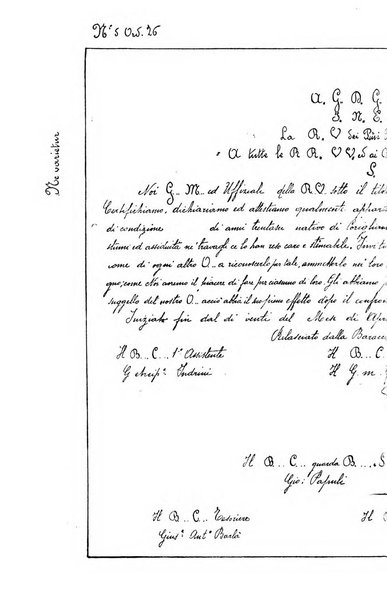 N.º 5 O.S. 26
Ne varietur
A. G. D. G.
S. N. E.
La R. ♡ dei Puri
A tutte le R R. ♡ ♡. ed ai
S.
Noi G. M. ed Uffiziale della R♡. sotto il tito
Certifichiamo, dichiariamo ed attestiamo qualment appar
di condizione di anni trentasei nativo di Corigliano
stumi ed assiduità ne' travagli ce lo han reso caro e stimabile.
come di ogni altro O.. a riconoscerlo per tale, ammetterlo nei loro
que, come Noi avremo il piacere di fare per ciascuno di loro. Gli abbiamo
suggello del nostro O.. acciò abbia il suo primo effetto dopo il confron
Iniziato fin dal dì venti del Mese di Apr
Rilasciato dalla Baracc
Il B... C... 1º Assistente
Il B... C...
Indrini
Il G. m.
Il B... C... guarda B... S
Gio: Papuli
Il B... C... Tesoriere
Il B...
Gius: Antº Barlà